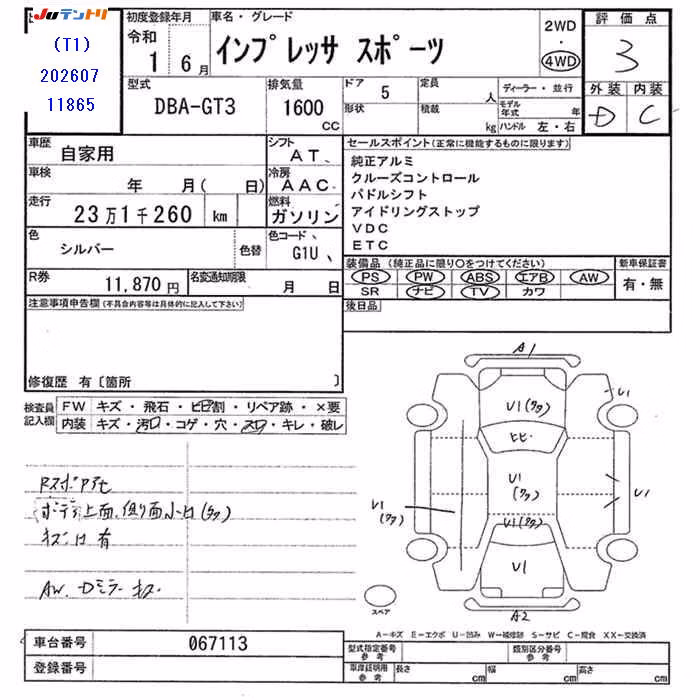 JUテントリ
(T1)
202607
11865
初度登録年月
令和
1 6月
車名・グレード
インプレッサ スポーツ
2WD
・
4WD
評価点
3
外装 内装
D C
型式
DBA-GT3
排気量
1600
CC
ドア
5
形状
定員
人
積載
kg
ディーラー・並行
モデル年式 年
ハンドル 左・右
車歴
自家用
シフト
AT、
車検
年 月( 日)
冷房
AAC
走行
23万1千260 km
燃料
ガソリン
色
シルバー
色替
色コード、
G1U、
R券
11,870円
名変通知期限
月 日
セールスポイント(正常に機能するものに限ります)
純正アルミ
クルーズコントロール
パドルシフト
アイドリングストップ
VDC
ETC
装備品 (純正品に限り〇をつけてください)
新車保証書
PS PW ABS エアB AW
SR ナビ TV カワ
有・無
後日品
注意事項申告欄(不具合内容等は具体的に記入して下さい)
修復歴 有〔箇所 〕
検査員記入欄
FW キズ・飛石・ヒビ割・リペア跡・×要
内装 キズ・汚レ・コゲ・穴・スレ・キレ・破レ
上面、側り面
キズ 有
AW、Dミラーキズ
A1
U1
U1(タタ)
ヒビ
U1
(タタ)
U1
(タタ)
U1
U1(タタ)
U1
A2
スペア
A-キズ E-エクボ U-凹み W-補修跡 S-サビ C-腐食 XX-交換済
車台番号
067113
登録番号
型式指定番号
参考
類別区分番号
参考
車庫証明用
参考
長さ cm
幅 cm
高さ cm